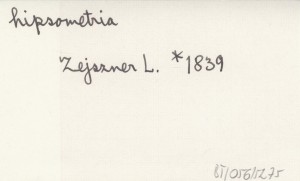 hipsometria
Zejszner L. *1839
BT/056/1275